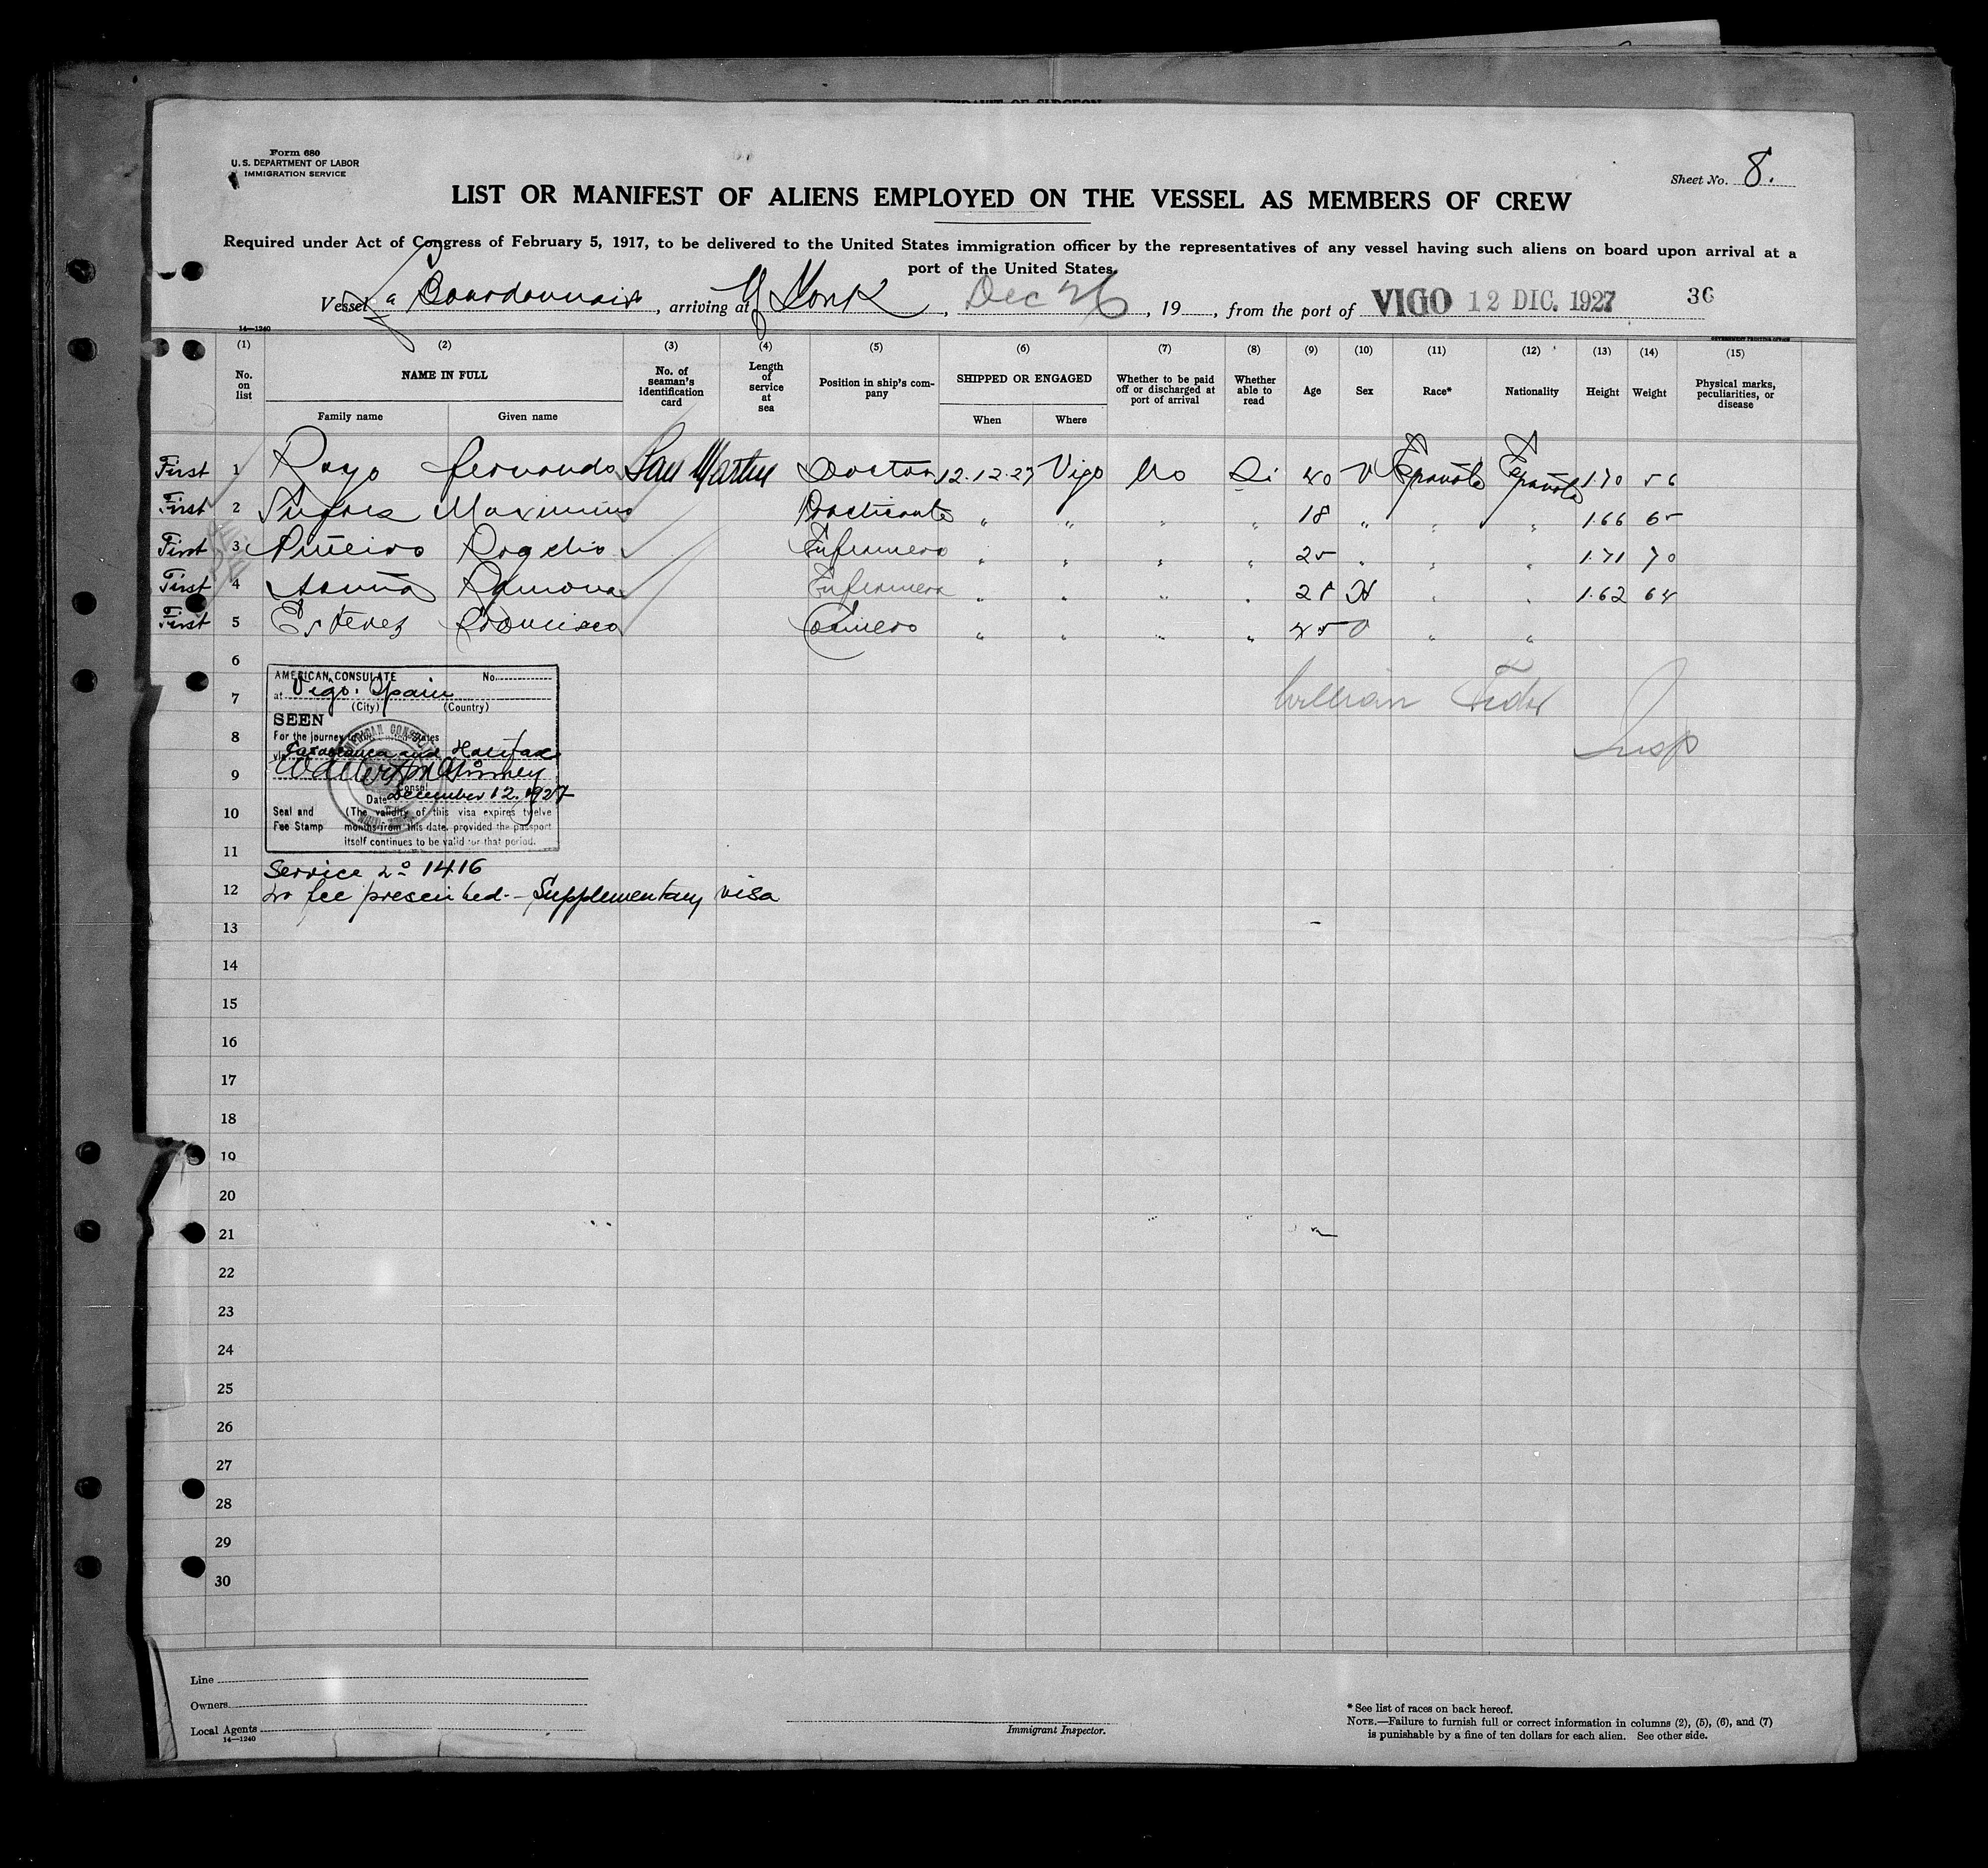 Form 680
U. S. DEPARTMENT OF LABOR
IMMIGRATION SERVICE
Sheet No. 8.
LIST OR MANIFEST OF ALIENS EMPLOYED ON THE VESSEL AS MEMBERS OF CREW
Required under Act of Congress of February 5, 1917, to be delivered to the United States immigration officer by the representatives of any vessel having such aliens on board upon arrival at a
port of the United States.
Vessel La Bourdonnais, arriving at N York, Dec 26, 19, from the port of VIGO 12 DIC. 1927 36
14—1240
(1) (2) (3) (4) (5) (6) (7) (8) (9) (10) (11) (12) (13) (14) (15)
No. on list NAME IN FULL No. of seaman's identification card Length of service at sea Position in ship's company SHIPPED OR ENGAGED Whether to be paid off or discharged at port of arrival Whether able to read Age Sex Race* Nationality Height Weight Physical marks, peculiarities, or disease
Family name Given name When Where
First 1 Rayo Fernando San Martin Doctor 12-12-27 Vigo No Si 40 V Española Española 1.70 56
First 2 Maximino Practicante " " " " 18 " " " 1.66 65
First 3 Piñeiro Rogelio Enfermero " " " " 25 " " " 1.71 70
First 4 Ramona Enfermera " " " " 28 H " " 1.62 64
First 5 Estevez Francisco Camarero " " " " 45 V " "
6
7
8
9
10
11
12
AMERICAN CONSULATE No.
at Vigo, Spain
(City) (Country)
SEEN
For the journey to the United States
via Casablanca and Halifax
Consul
Date December 12, 1927
Seal and Fee Stamp
(The validity of this visa expires twelve
months from this date, provided the passport
itself continues to be valid for that period.
Service No 1416
No fee prescribed.- Supplementary visa
William
Insp
13
14
15
16
17
18
19
20
21
22
23
24
25
26
27
28
29
30
Line
Owners
Local Agents
14—1240
Immigrant Inspector.
* See list of races on back hereof.
NOTE.—Failure to furnish full or correct information in columns (2), (5), (6), and (7)
is punishable by a fine of ten dollars for each alien. See other side.